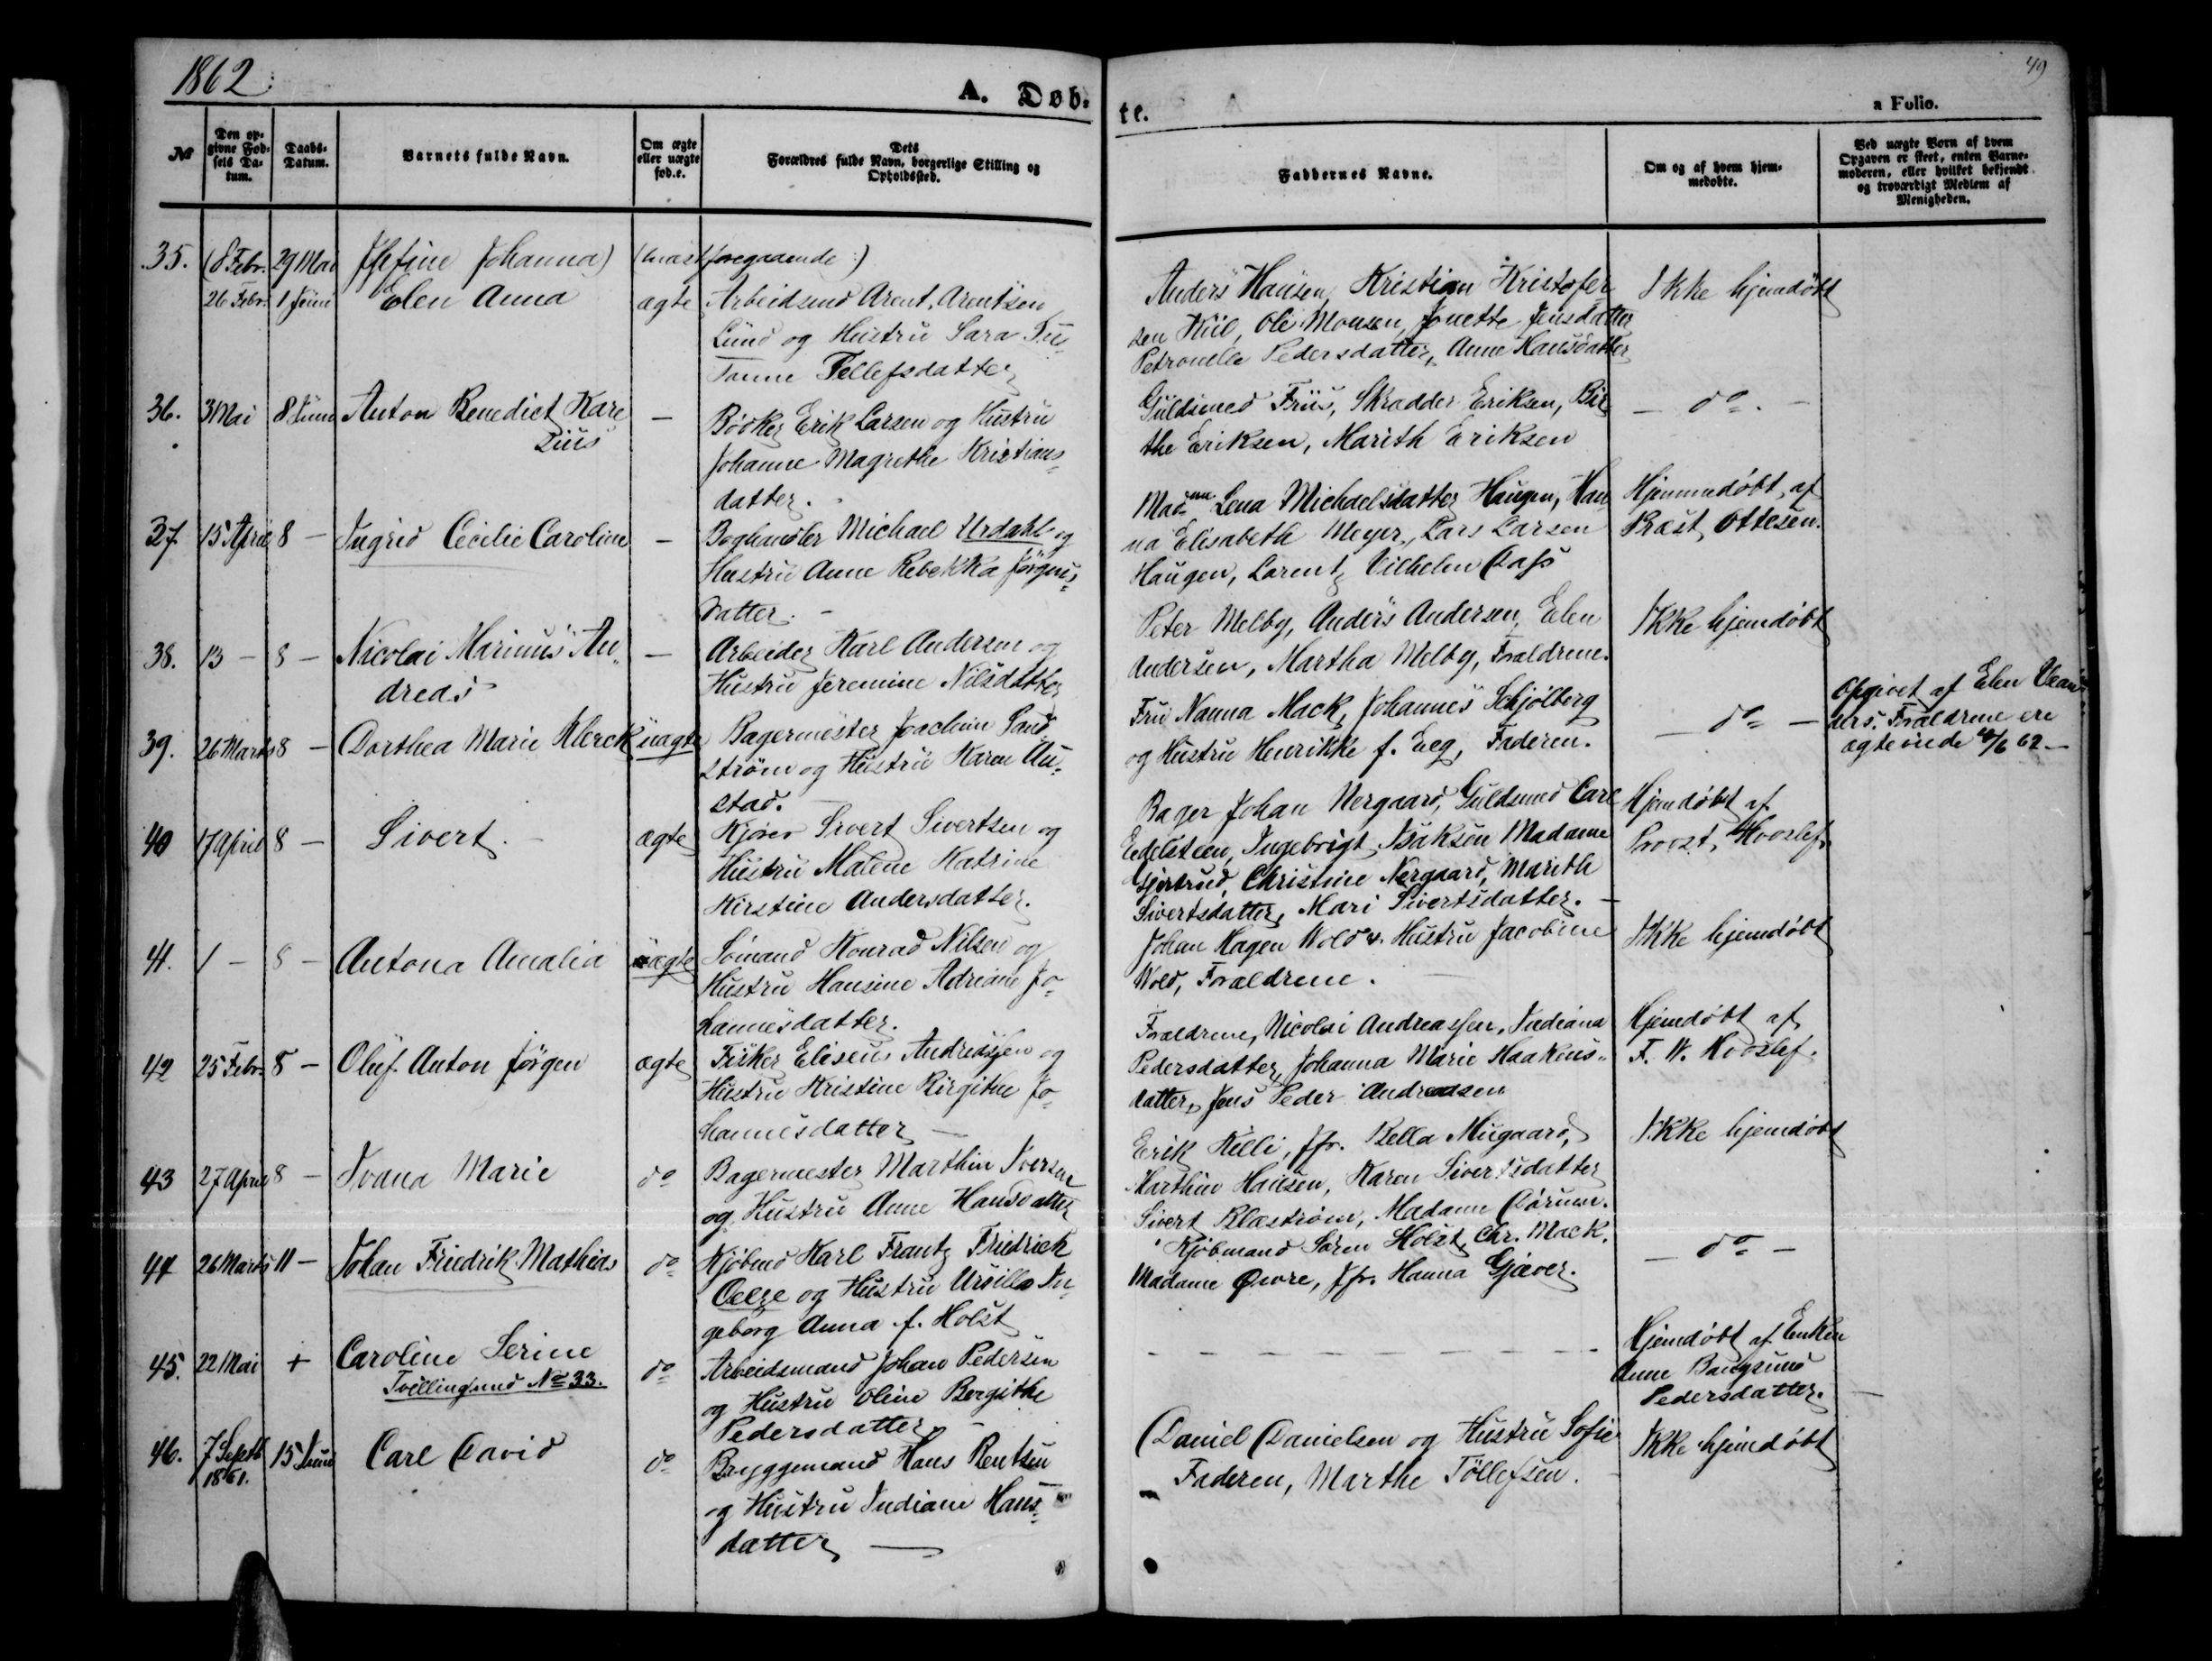 1862.
A. Døb-
te.
a Folio.
49
№
Den op-
givne Fød-
sels Da-
tum.
Daabs-
Datum.
Barnets fulde Navn.
Om ægte
eller uægte
fød.e.
Dets
Forældres fulde Navn, borgerlige Stilling og
Opholdssted.
Faddernes Navne.
Om og af hvem hjem-
medøbte.
Ved uægte Børn af hvem
Opgaven er skeet, enten Barne-
moderen, eller hvilket bekjendt
og troværdigt Medlem af
Menigheden.
35. (8 Febr. 29 Mai Johanna) foregaaende :)
26 Febr. 1 Juni Elen Anna ægte Arbeidsmd Arent Arentsen
Lund og Hustru Sara Su-
sanne Tellefsdatter
Anders Hansen, Kristian Kristofer
sen Kiil, Ole Monsen, Jonette Jensdatter
Petronelle Pedersdatter, Anne Hansdatter
Ikke hjemdøbt
36. 3 Mai 8 Juni Anton Benedict Kare
lius
— Bødker Erik Larsen og Hustru
Johanne Magrethe Kristians-
datter.
Guldsmed Friis, Skrædder Eriksen, Bir
the Eriksen, Marith Eriksen
— do. —
37. 15 April 8 — Ingrid Cecilie Caroline — Boghandler Michael Urdahl og
Hustru Anne Rebekka Jørgens-
datter. —
Mad. Lena Michaelsdatter Haugen, Han
na Elisabeth Meyer, Lars Larsen
Haugen, Lorentz Vilhelm Dass
Hjemmedøbt af
Præst Ottesen.
38. 13 — 8 — Nicolai Marinus An-
dreas
— Arbeider Karl Andersen og
Hustru Jeremine Nilsdatter
Peter Melby, Anders Andersen, Elen
Andersen, Martha Melby, Forældrene.
Ikke hjemdøbt
39. 26 Marts 8 — Dorthea Marie Klerck uægte Bagermester Joachim Sand
strøm og Hustru Karen Au-
stad.
Fru Nanna Mack, Johannes Schjølberg
og Hustru Henrikke f. Eeg, Faderen.
— do —
Opgivet af Elen
Forældrene ere
ægteviede 62 —
40 17 April 8 — Sivert. — ægte Kjører Sivert Sivertsen og
Hustru Malene Katrine
Kirstine Andersdatter.
Bager Johan Nergaard, Guldsmed Carl
Edelsteen, Ingebrigt Isaksen Madame
Gjertrud, Christine Nergaard, Marith
Sivertsdatter, Mari Sivertsdatter. —
Hjemdøbt af
Provst Kooslef.
41. 1 — 8 — Antona Amalia uægte Sømand Konrad Nilsen og
Hustru Hansine Adriane Jo-
hannesdatter.
Johan Hagen Wold & Hustru Jacobine
Wold, Forældrene.
Ikke hjemdøbt
42 25 Febr. 8 — Oluf Anton Jørgen ægte Fisker Eliseus Andreassen og
Hustru Kristine Birgithe Jo-
hannesdatter —
Forældrene, Nicolai Andreassen, Indiana
Pedersdatter, Johanna Marie Haakens-
datter, Jens Peder Andreasen
Hjemdøbt af
F. W. Kooslef.
43 27 April 8 — Ivana Marie do Bagermester Marthin Iversen
og Hustru Anne Hansdatter
Erik Killi, Jfr. Bella Mugaard,
Marthin Hansen, Karen Sivertsdatter
Sivert Blæstrøm, Madame Dørum.
Ikke hjemdøbt
44 26 Marts 11 — Johan Friedrik Mathias do Kjøbmd Karl Frantz Friedrick
Oelze og Hustru Ursilla In-
geborg Anna f. Holst
Kjøbmand Søren Holst, Chr. Mack.
Madame Øwre, Jfr. Hanna Gjæver.
— do —
45. 22 Mai + Caroline Serine
Tvilling med No 33.
do Arbeidsmand Johan Pedersen
og Hustru Oline Bergithe
Pedersdatter
Hjemdøbt af Enken
Anne Baugsund
Pedersdatter.
46. 7 Septb
1861.
15 Juni Carl David do Bryggemand Hans Bentsen
og Hustru Indiane Hans-
datter —
Daniel Danielsen og Hustru Sofie
Faderen, Marthe Tøllefsen.
Ikke hjemdøbt